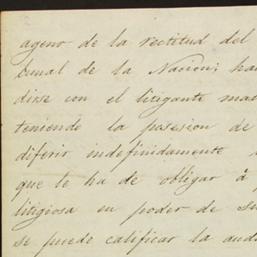 ageno de la rectitud del
bunal de la Nacion; ha
dirse con el litigante ma
teniendo la posesion de
diferir indefinidamente
que le ha de obligar á
litigiosa en poder de su
se puede calificar la aud